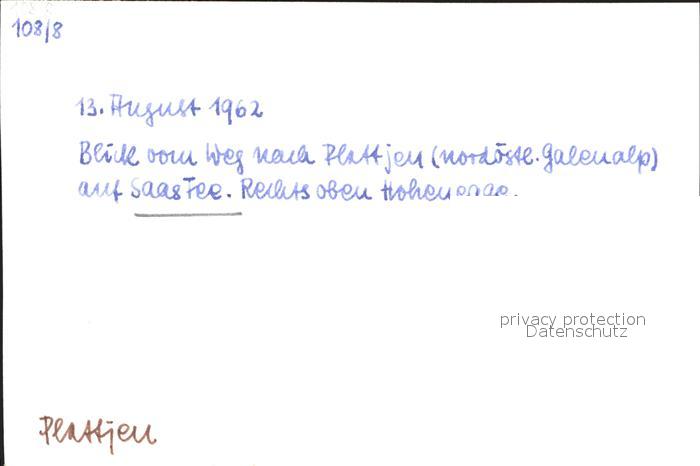 108/8
13. August 1962
Blick vom Weg nach Plattjen (nordöstl. Galenalp)
auf Saas Fee. Rechts oben
privacy protection
Datenschutz
Plattjen